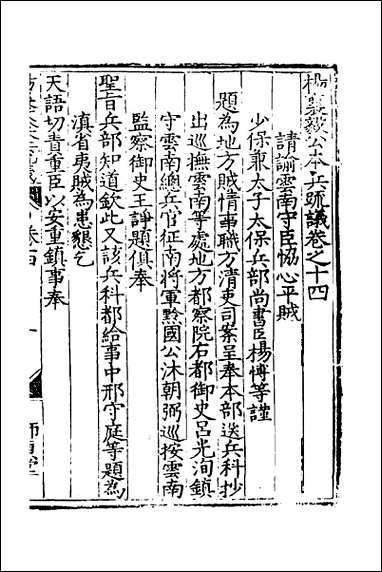 楊襄毅公本兵疏議卷之十四
請諭雲南守臣恊心平賊
少保兼太子太保兵部尚書臣楊博等謹
題為地方賊情事職方清吏司案呈奉本部送兵科抄
出巡撫雲南等處地方都察院右都御史呂光洵鎮
守雲南總兵官征南將軍黔國公沐朝弼巡按雲南
監察御史王諍題俱奉
聖旨兵部知道欽此又該兵科都給事中邢守庭等題為
滇省夷賊為患懇乞
天語切責重臣以安重鎮事奉
師貞堂